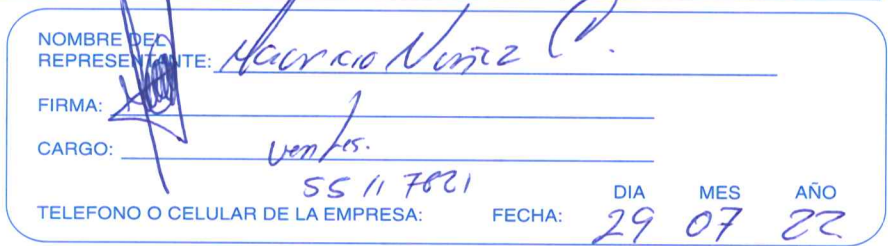 NOMBRE DEL
REPRESENTANTE: Mauricio Nuñez P.
FIRMA:
CARGO: Ventas.
5511 7821
TELEFONO O CELULAR DE LA EMPRESA: FECHA: DIA MES AÑO
29 07 22